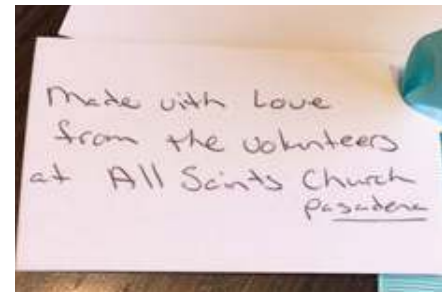 Made with Love
from the volunteers
at All Saints Church
Pasadena